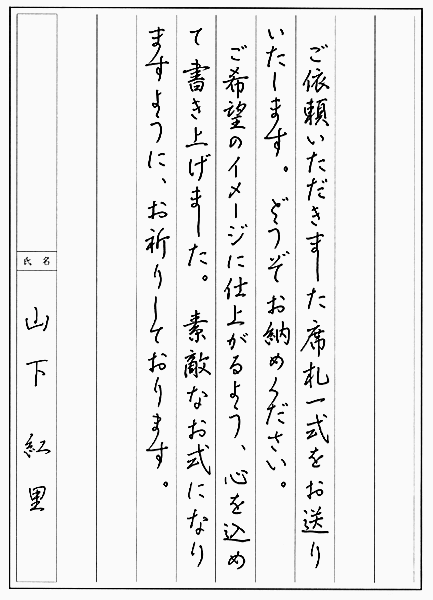 ご依頼いただきました席札一式をお送り
いたします。どうぞお納めください。
ご希望のイメージに仕上がるよう、心を込め
て書き上げました。素敵なお式になり
ますように、お祈りしております。
氏名
山下紅里